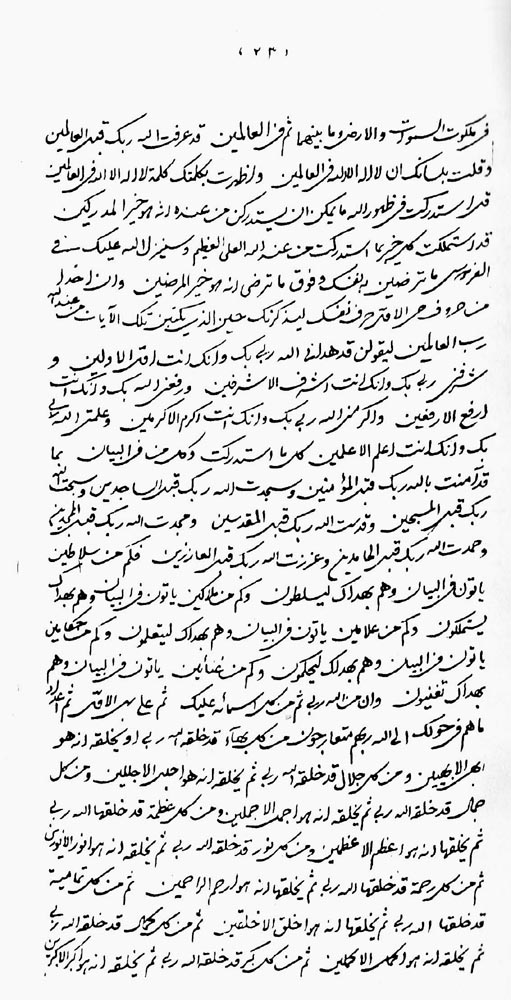 ٢٣١
فی ملکوت السموات والارض وما بینهما ثم فی العالمین قد عرفت الله ربک قبل العالمین
وقلت بلسانک ان لا اله الا الله فی العالمین واظهرت بکلمتک کلمة لا اله الا الله فی العالمین
قد استدرکت فی ظهور الله ما یمکن ان یستدرکن من عنده انه هو خیر المدرکین
قد استملکت کل خیر بما استدرکت من عند الله العلی العظیم وسینزل الله علیک فی
الفردوس ما ترضین به نفسک وفوق ما ترضی انه هو خیر المرضین وان احدا
من حروف حی الاقتر حرف نفسک لیذکرنک حین الذی یکتبن تلک الآیات من عند الله
رب العالمین لیقولن قد هدانی الله ربی بک وانک انت اقتی الاولین و
شرفنی ربی بک وانک انت اشرف الاشرفین ورفعنی الله بک وانک انت
ارفع الارفعین واکرمنی الله ربی بک وانک انت اکرم الاکرمین وعلمنی الله ربی
بک وانک انت اعلم الاعلمین کل ما استدرکت وکل من فی البیان بما
قد آمنت بالله ربک قبل المؤمنین وسجدت الله ربک قبل الساجدین وسبحت الله
ربک قبل المسبحین وقدست الله ربک قبل المقدسین ومجدت الله ربک قبل المجدین
وحمدت الله ربک قبل الحامدین وعززت الله ربک قبل العازرین فکم من سلاطین
یاتون فی البیان وهم بهداک لیسلطون وکم من ملاکین یاتون فی البیان وهم بهداک
یستملکون وکم من علامین یاتون فی البیان وهم بهداک لیتعلمون وکم من حکامین
یاتون فی البیان وهم بهداک لیحکمون وکم من غنائین یاتون فی البیان وهم
بهداک تغنیون وان من الله ربی ثم من کل اسمائه علیک ثم علی بهی الاقتی ثم
ما هم فی حولک الی الله ربهم متعارجون من کل بهاء قد خلقه الله ربی او یخلقه انه هو
ابهی الابهیین ومن کل جلال قد خلقه الله ربی ثم یخلقه انه هو اجل الاجللین ومن کل
جمال قد خلقه الله ربی ثم یخلقه انه هو اجمل الاجملین ومن کل عظمة قد خلقها الله ربی
ثم یخلقها انه هو اعظم الاعظمین ومن کل نور قد خلقه الله ربی ثم یخلقه انه هو انور الانورین
ثم من کل رحمة قد خلقها الله ربی ثم یخلقها انه هو ارحم الراحمین ثم من کل تمامیة
قد خلقها الله ربی ثم یخلقها انه هو اخلق الاخلقین ثم من کل کمال قد خلقه الله ربی
ثم یخلقه انه هو اکمل الاکملین ثم من کل کبر قد خلقه الله ربی ثم یخلقه انه هو اکبر الاکبرین